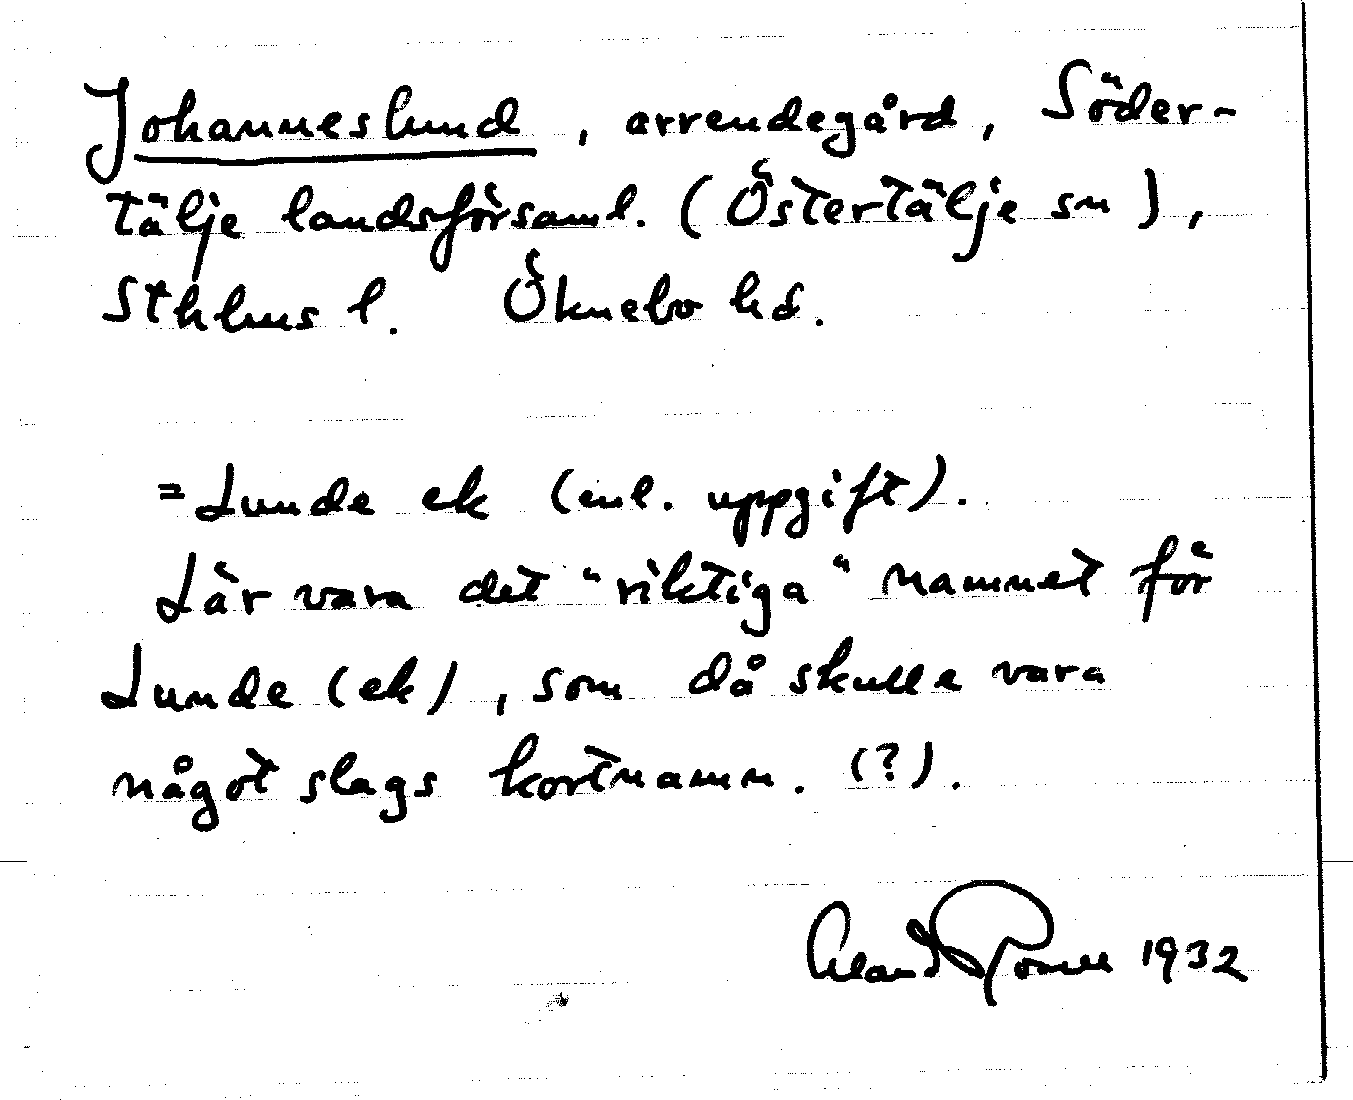 Johanneslund, arrendegård, Söder-
tälje landsförsaml. (Östertälje sn),
Sthlms l. Öknebo hd.
= Lunde ek (enl. uppgift).
Lär vara det "riktiga" namnet för
Lunde (ek), som då skulle vara
något slags kortnamn. (?).
1932